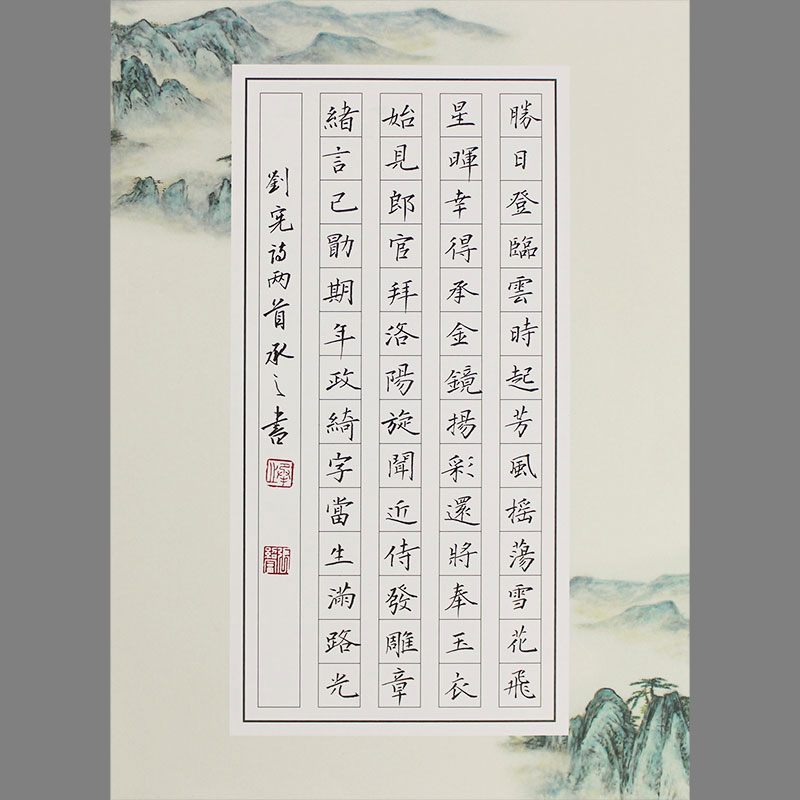 勝日登臨雲時起芳風摇蕩雪花飛
星暉幸得承金鏡揚彩還將奉玉衣
始見郎官拜洛陽旋聞近侍發雕章
緒言已勖期年政綺字當生滿路光
劉宪诗两首承之書
承之